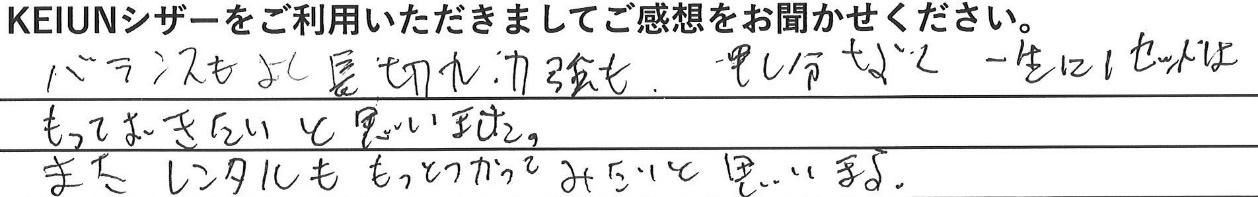 KEIUNシザーをご利用いただきましてご感想をお聞かせください。
バランスもよく長切れ、力強も、申し分なくて 一生に1セットは
もっておきたいと思いました。
また レンタルも もっとつかって みたいと 思います。